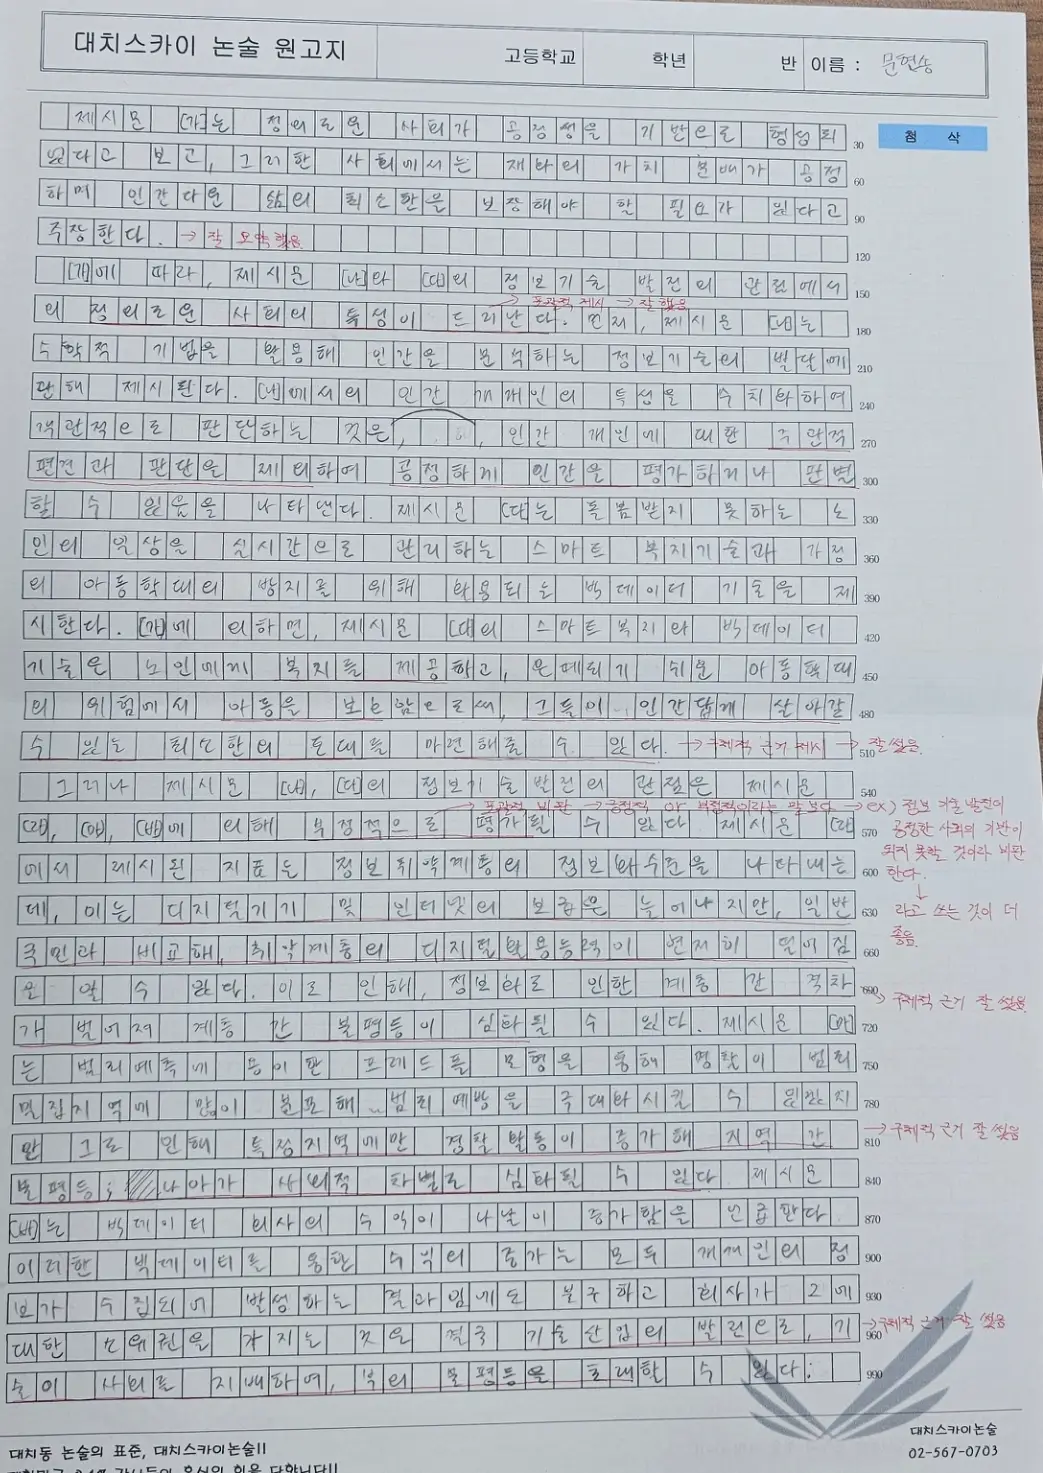 대치스카이 논술 원고지 고등학교 학년 반 이름 : 문현송
첨 삭
제시문 (가)는 정의로운 사회가 공정성을 기반으로 형성되 30
있다고 보고, 그러한 사회에서는 재화의 가치 분배가 공정 60
하며 인간다운 삶의 최소한을 보장해야 할 필요가 있다고 90
주장한다. → 잘 요약했음. 120
(가)에 따라, 제시문 (나)와 (다)의 정보기술 발전의 관점에서 150
→ 포괄적 제시 → 잘 했음
의 정의로운 사회의 특성이 드러난다. 먼저, 제시문 (나)는 180
수학적 기법을 활용해 인간을 분석하는 정보기술의 발달에 210
관해 제시된다. (나)에서의 인간 개개인의 특성을 수치화하여 240
객관적으로 판단하는 것은, 인간 개인에 대한 주관적 270
편견과 판단을 제외하여 공정하게 인간을 평가하거나 판별 300
할 수 있음을 나타낸다. 제시문 (다)는 돌봄받지 못하는 노 330
인의 일상을 실시간으로 관리하는 스마트 복지기술과 가정 360
의 아동학대의 방지를 위해 활용되는 빅데이터 기술을 제 390
시한다. (가)에 의하면, 제시문 (다)의 스마트복지와 빅데이터 420
기술은 노인에게 복지를 제공하고, 은폐되기 쉬운 아동학대 450
의 위험에서 아동을 보호함으로써, 그들이 인간답게 살아갈 480
수 있는 최소한의 토대를 마련해줄 수 있다. → 구체적 근거 제시 → 잘 썼음. 510
그러나 제시문 (나), (다)의 정보기술발전의 관점은 제시문 540
→ 포괄적 비판 → 긍정적 or 부정적이라는 말 보다 → ex) 정보 기술 발전이
(라), (마), (바)에 의해 부정적으로 평가될 수 있다. 제시문 (라) 570
공정한 사회의 기반이
되지 못할 것이라 비판
한다.
↓
라고 쓰는 것이 더
좋음.
에서 제시된 지표는 정보취약계층의 정보화수준을 나타내는 600
데, 이는 디지털기기 및 인터넷의 보급은 늘어나지만, 일반 630
국민과 비교해, 취약계층의 디지털활용능력이 현저히 떨어짐 660
을 알 수 있다. 이로 인해, 정보화로 인한 계층 간 격차 690
→ 구체적 근거 잘 썼음.
가 벌어져 계층 간 불평등이 심화될 수 있다. 제시문 (마) 720
는 범죄예측에 용이한 프레드폴 모형을 통해 경찰이 범죄 750
밀집지역에 많이 분포해 범죄 예방을 극대화시킬 수 있지 780
만 그로 인해 특정지역에만 경찰 활동이 증가해 지역 간 810
→ 구체적 근거 잘 썼음
불평등, 나아가 사회적 차별로 심화될 수 있다. 제시문 840
(바)는 빅데이터 회사의 수익이 나날이 증가함을 언급한다. 870
이러한 빅데이터를 통한 수익의 증가는 모두 개개인의 정 900
보가 수집되어 발생하는 결과임에도 불구하고 회사가 그에 930
대한 소유권을 가지는 것은 결국 기술산업의 발전으로, 기 960
→ 구체적 근거 잘 썼음
술이 사회를 지배하여, 부의 불평등을 초래할 수 있다. 990
대치동 논술의 표준, 대치스카이논술!!
대치스카이논술
02-567-0703